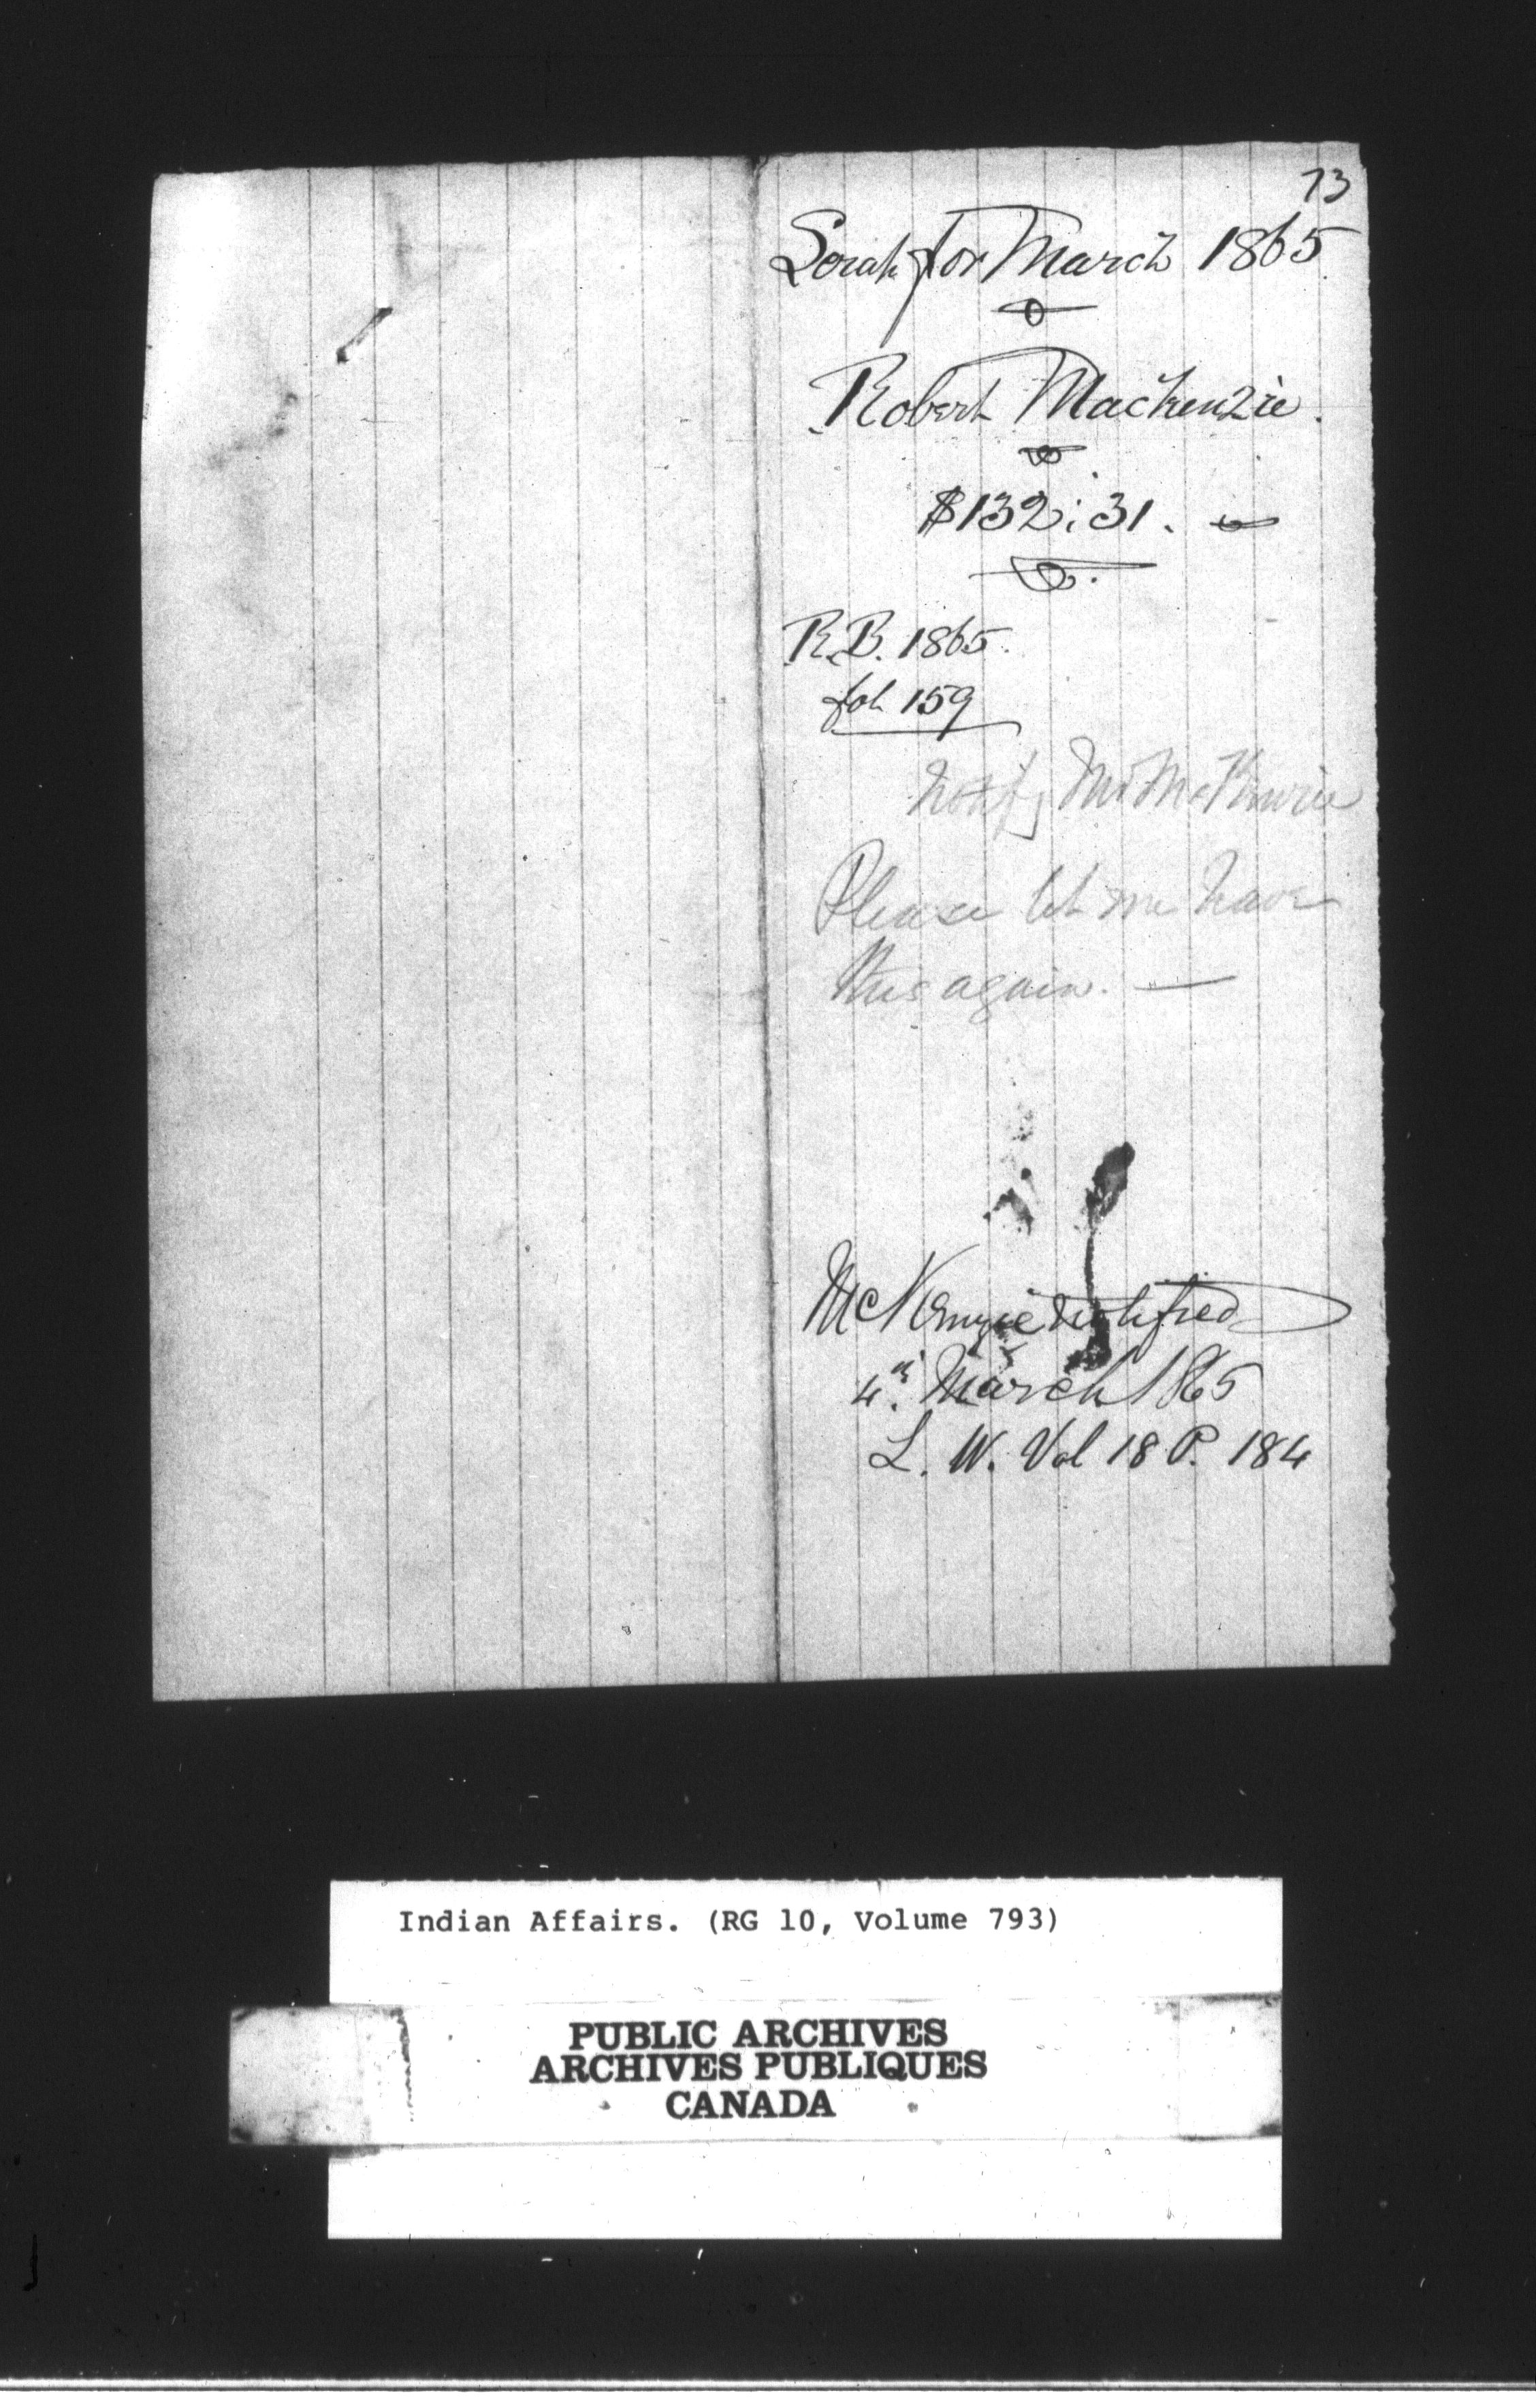 73
for March 1865
Robert Mackenzie.
$132:31.
R.B. 1865.
fol 159
Notify Mr McKenzie
Please let me have
this again. —
McKenzie notified
4th March 1865
L. W. Vol 18 P. 184
Indian Affairs. (RG 10, Volume 793)
PUBLIC ARCHIVES
ARCHIVES PUBLIQUES
CANADA